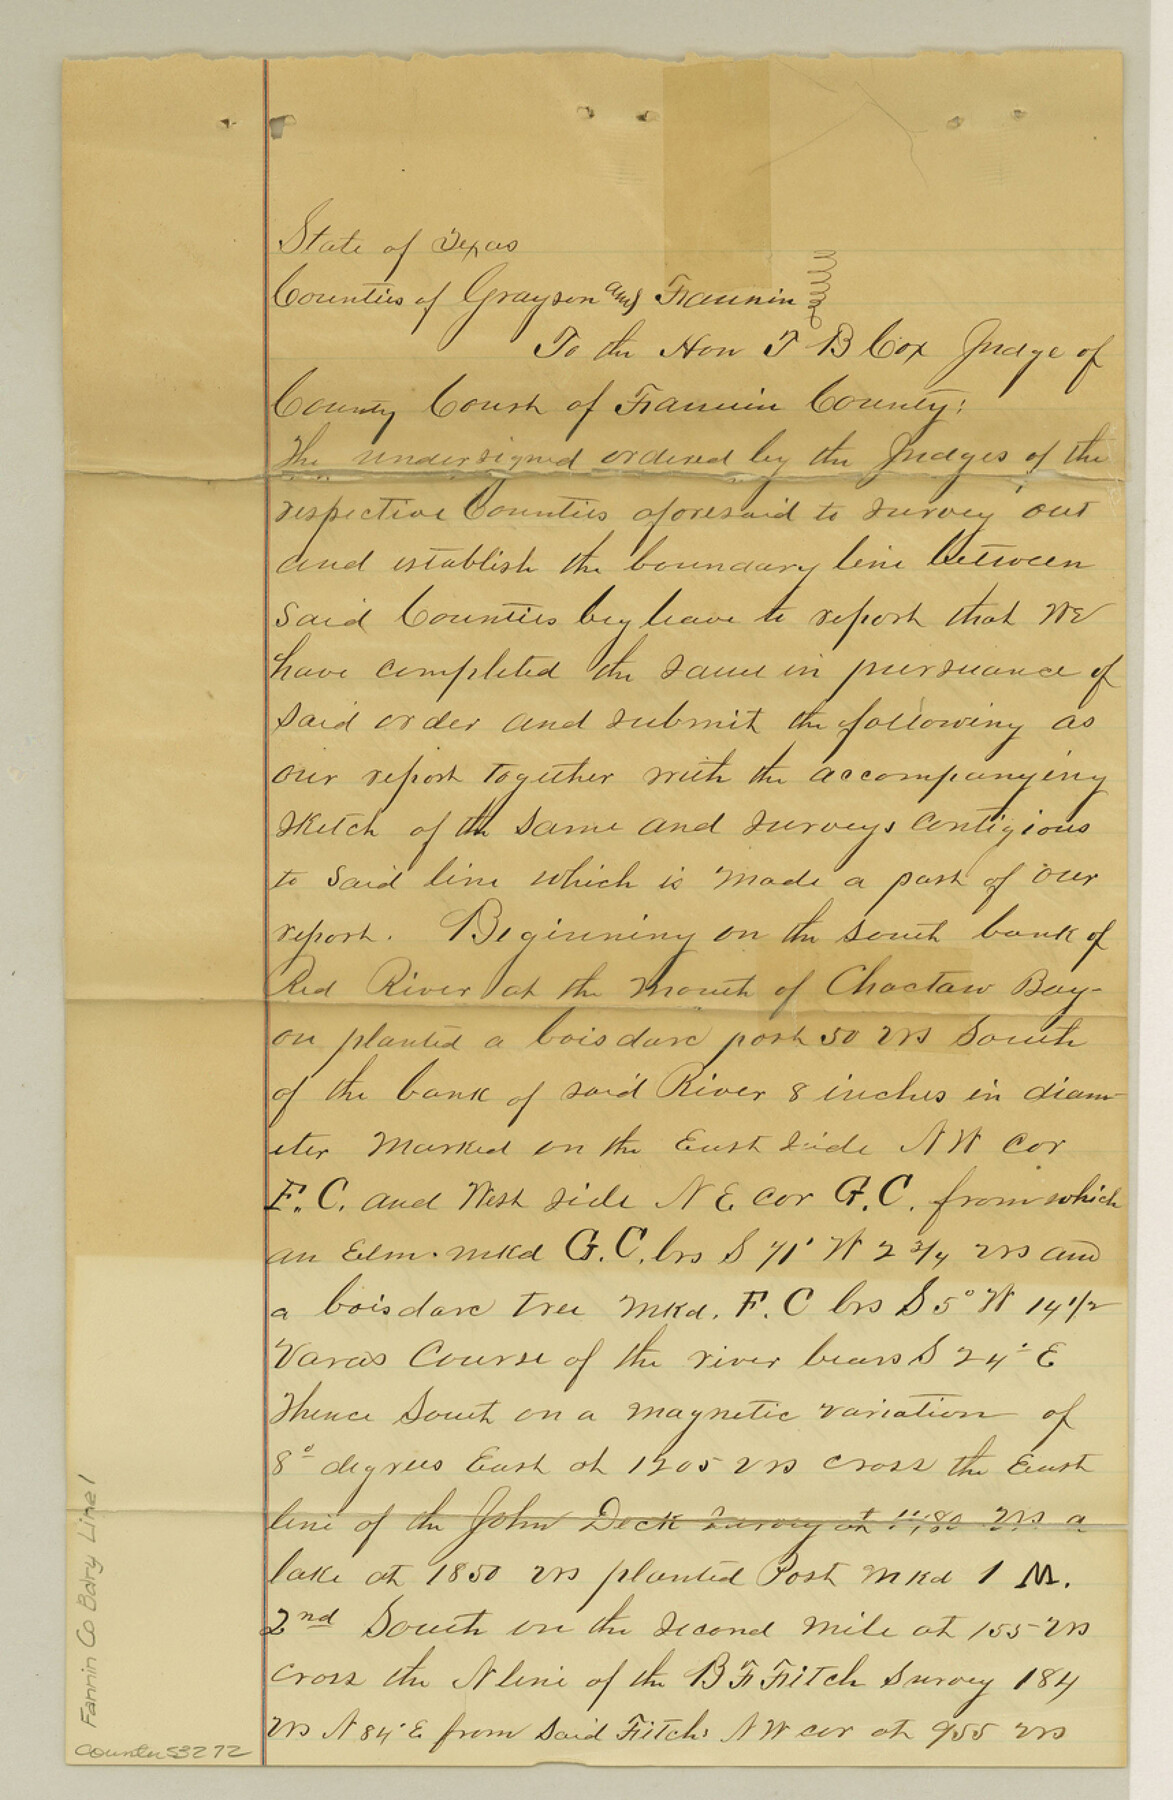 State of Texas
Counties of Grayson and Fannin
To the Hon T B Cox Judge of
County Court of Fannin County;
The undersigned ordered by the Judges of the
respective Counties aforesaid to survey out
and establish the boundary line between
said Counties beg leave to report that we
have completed the same in pursuance of
said order and submit the following as
our report together with the accompanying
sketch of the same and surveys contigious
to said line which is made a part of our
report. Beginning on the south bank of
Red River at the mouth of Choctaw Bay-
ou planted a boisdarc post 50 vrs South
of the bank of said River 8 inches in diam-
eter marked on the East side N W cor
F. C. and West side N E cor G. C. from which
an Elm. mkd G. C. brs S 71° W 2 3/4 vrs and
a boisdarc tree mkd. F. C brs S 5° W 14 1/2
Varas Course of the river bears S 24° E
Thence South on a magnetic variation of
8° degrees East at 1205 vrs cross the East
line of the John Deck Survey at 1180 vrs a
lake at 1850 vrs planted Post mkd 1 M.
2nd South on the second mile at 155 vrs
cross the N line of the B F Fitch Survey 184
vrs N 84° E from said Fitchs N W cor at 955 vrs
Fannin Co Bdry Line 1
counter 53272